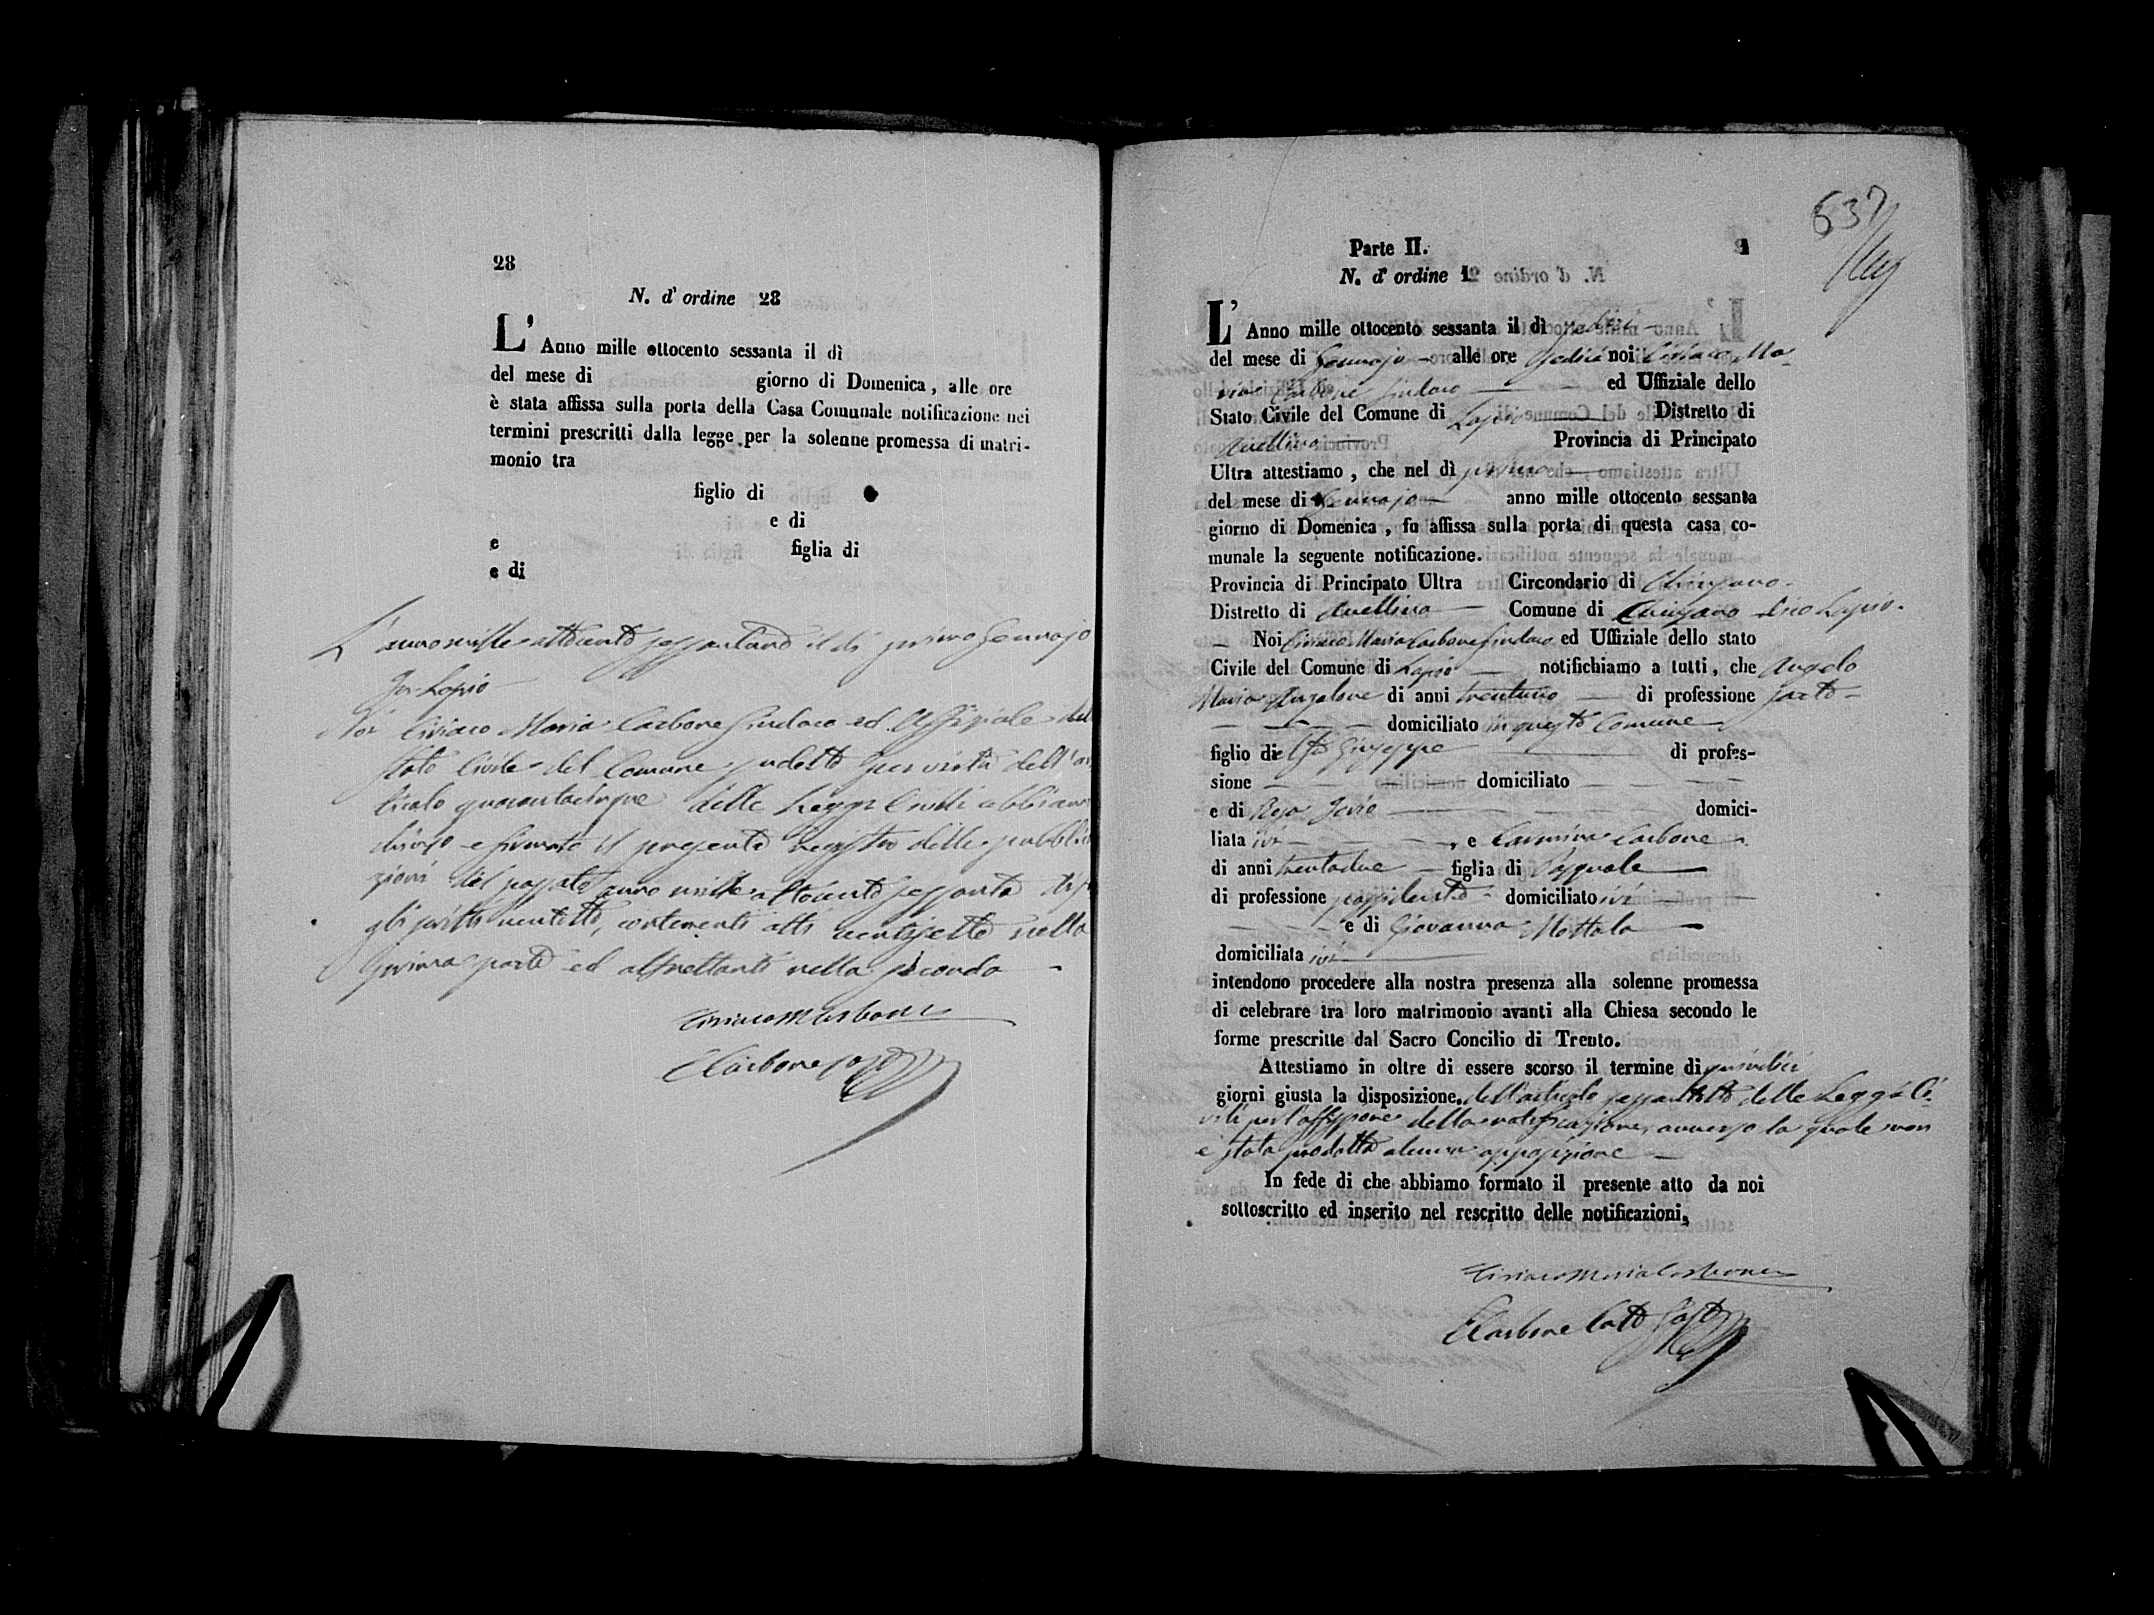 28
N. d' ordine 28
L' Anno mille ottocento sessanta il dì
del mese di giorno di Domenica, alle ore
è stata affissa sulla porta della Casa Comunale notificazione nei
termini prescritti dalla legge per la solenne promessa di matri-
monio tra
figlio di
e di
e figlia di
e di
L'anno mille ottocento sessantuno il dì primo Gennajo
In Lapio
Noi Ciriaco Maria Carbone Sindaco ed Uffiziale dello
Stato Civile del Comune sudetto in vista dell'ar
ticolo quarantacinque delle Leggi Civili abbiamo
chiuso e firmato il presente registro delle pubblica
zioni del passato anno mille ottocento sessanta
gli scritti ventotto, contenenti atti ventisette nella
prima parte ed altrettanti nella seconda
Ciriaco M Carbone
Carbone
637
Parte II. 1
N. d' ordine 1
L' Anno mille ottocento sessanta il dì sedici
del mese di Gennajo alle ore sedici noi Ciriaco Ma
ria Carbone Sindaco ed Uffiziale dello
Stato Civile del Comune di Lapio Distretto di
Avellino Provincia di Principato
Ultra attestiamo, che nel dì primo
del mese di Gennajo anno mille ottocento sessanta
giorno di Domenica, fu affissa sulla porta di questa casa co-
munale la seguente notificazione.
Provincia di Principato Ultra Circondario di Chiusano
Distretto di Avellino Comune di Chiusano dico Lapio.
Noi Ciriaco Maria Carbone Sindaco ed Uffiziale dello stato
Civile del Comune di Lapio notifichiamo a tutti, che Angelo
Maria Anzalone di anni trentuno di professione sarto
domiciliato in questo Comune
figlio di Giuseppe di profes-
sione domiciliato
e di Rosa Jevio domici-
liata ivi e Carmina Carbone
di anni trentadue figlia di Pasquale
di professione possidente domiciliato ivi
e di Giovanna Mottola
domiciliata ivi
intendono procedere alla nostra presenza alla solenne promessa
di celebrare tra loro matrimonio avanti alla Chiesa secondo le
forme prescritte dal Sacro Concilio di Trento.
Attestiamo in oltre di essere scorso il termine di quindici
giorni giusta la disposizione dell'articolo sessantotto delle Leggi Ci
vili per l'affissione della notificazione, avverso la quale non
è stata prodotta alcuna opposizione
In fede di che abbiamo formato il presente atto da noi
sottoscritto ed inserito nel rescritto delle notificazioni,
Ciriaco Maria Carbone
Carbone